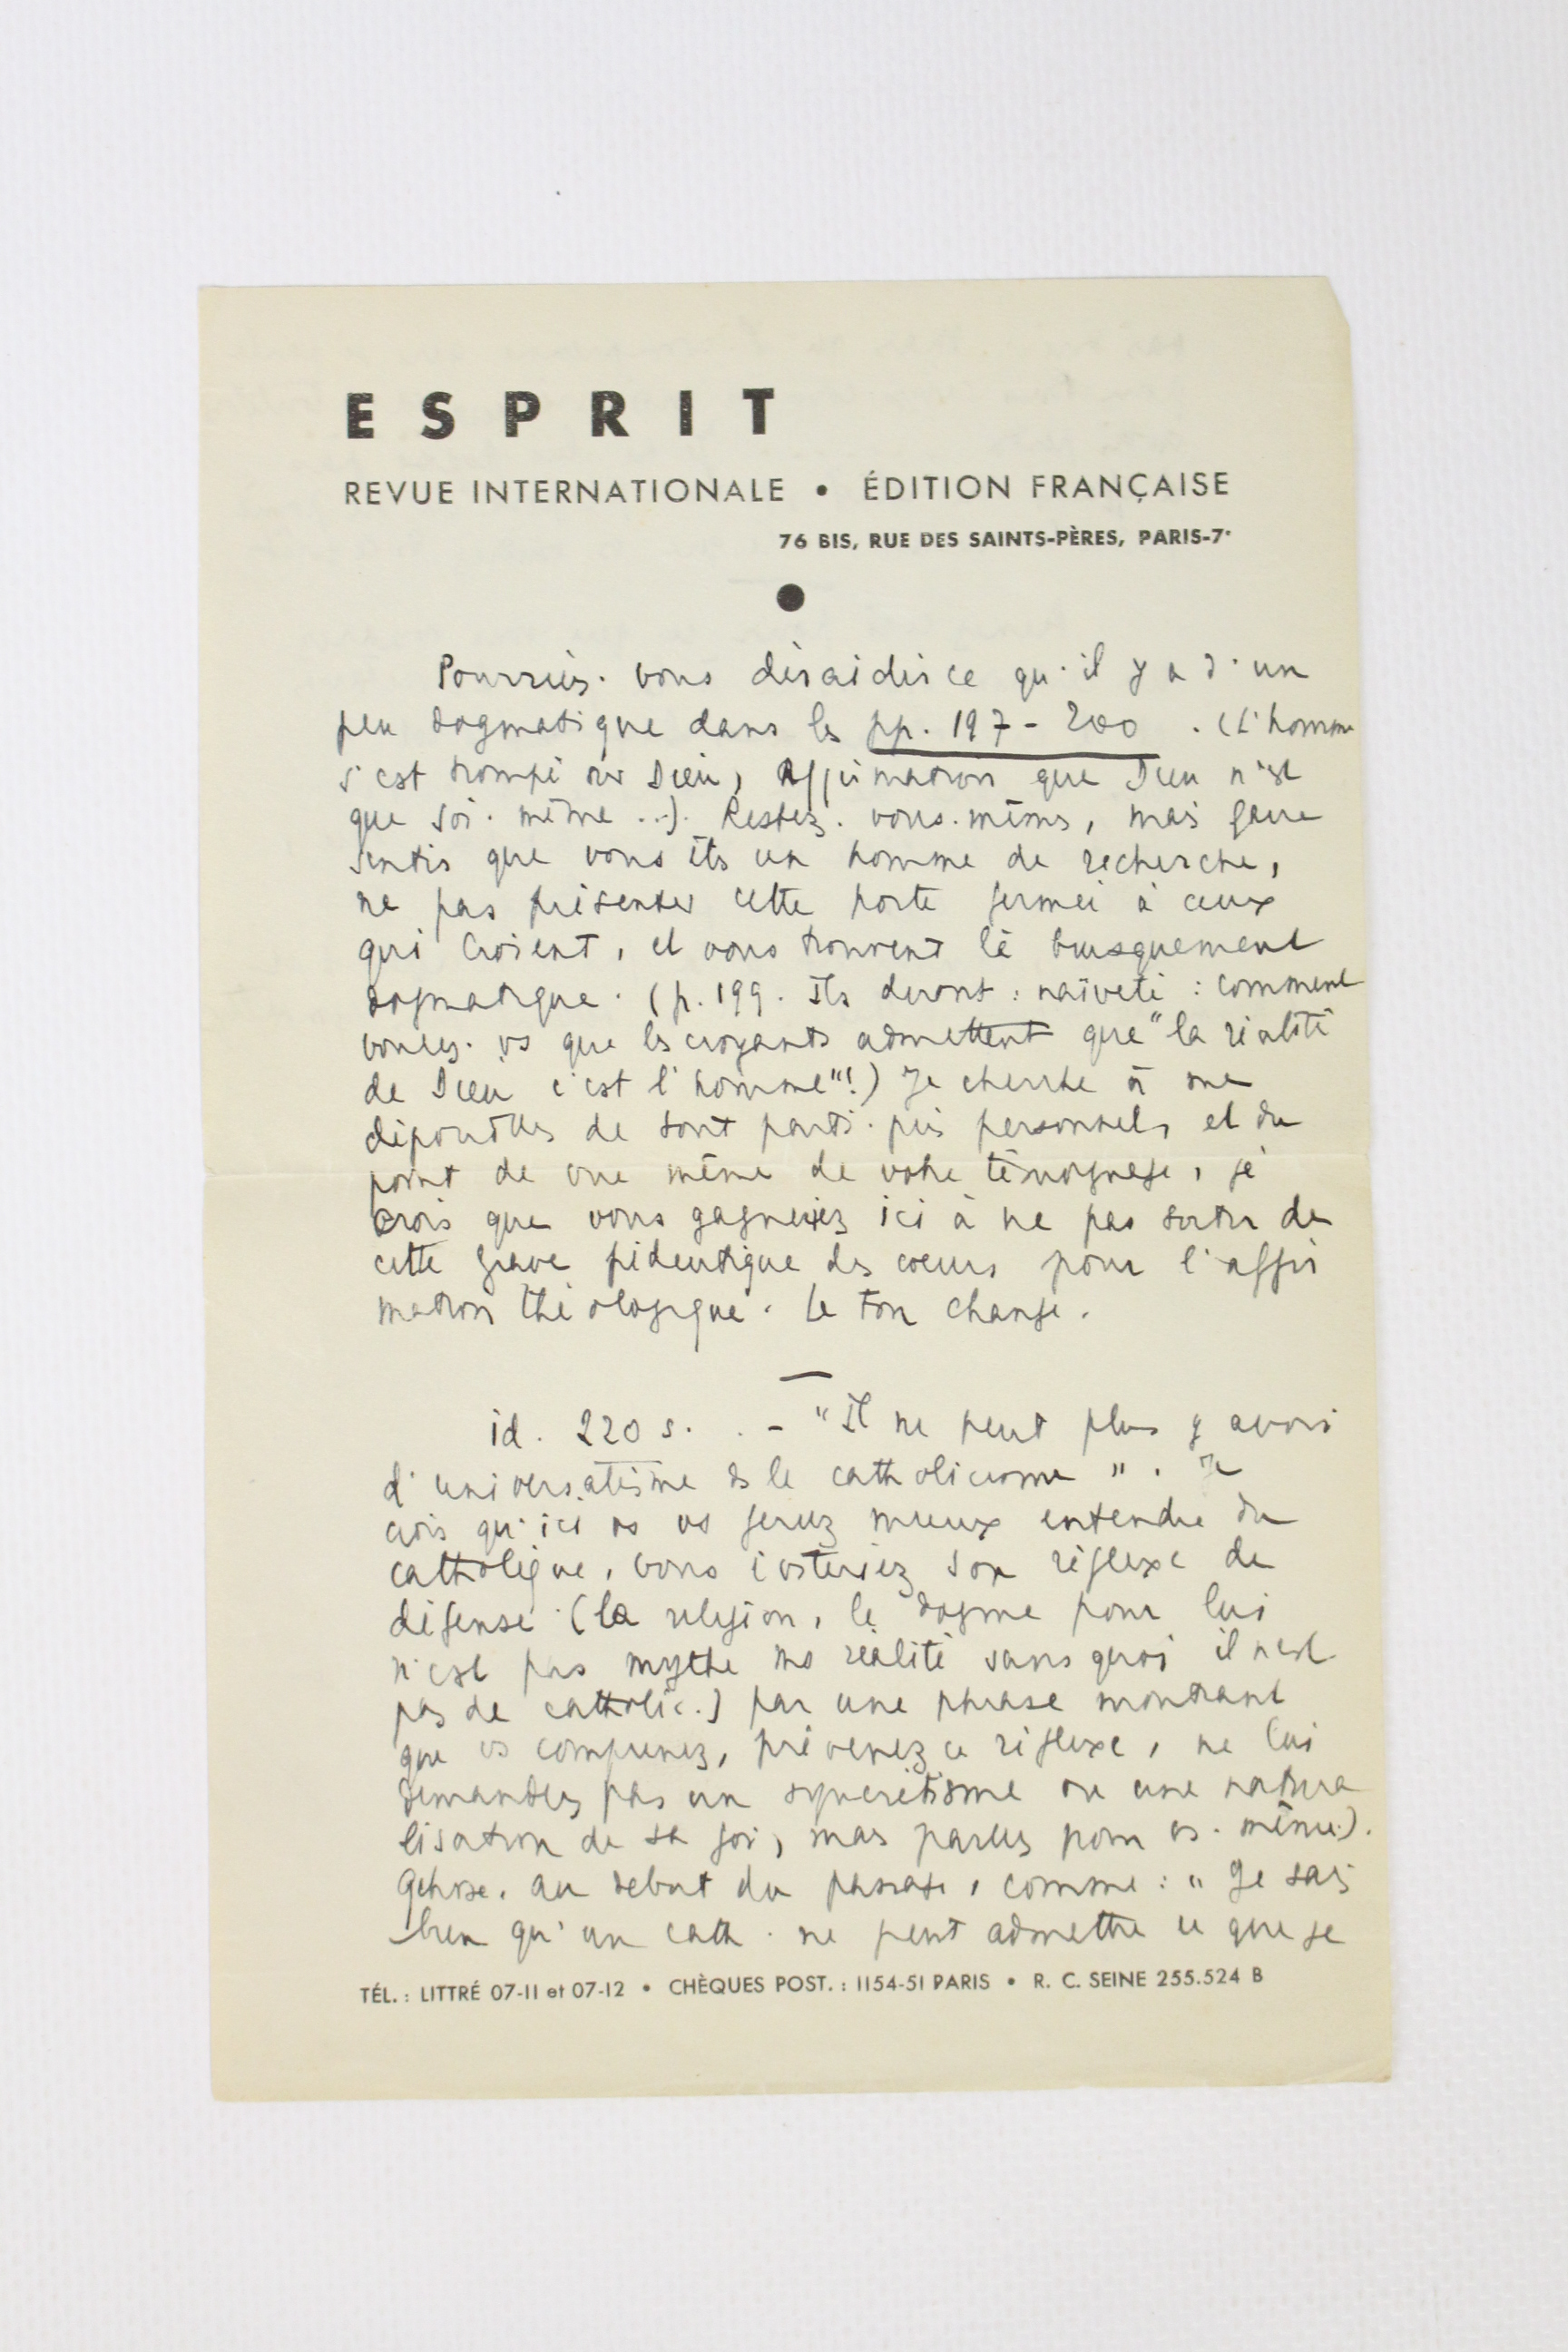 ESPRIT
REVUE INTERNATIONALE • ÉDITION FRANÇAISE
76 BIS, RUE DES SAINTS-PÈRES, PARIS-7e
Pourriez-vous déraidir ce qu'il y a d'un
peu dogmatique dans les pp. 197-200. (L'homme
s'est trompé sur Dieu, Affirmation que Dieu n'est
que soi-même...). Restez vous-même, mais faire
sentir que vous êtes un homme de recherche,
ne pas présenter cette porte fermée à ceux
qui croient, et vous trouvent là brusquement
dogmatique. (p. 199. Ils diront : naïveté : comment
voulez-vs que les croyants admettent que "la réalité
de Dieu c'est l'homme"!) Je cherche à me
dépouiller de tout parti-pris personnel, et du
point de vue même de votre témoignage, je
crois que vous gagneriez ici à ne pas sortir de
cette grave des coeurs pour l'affir
mation théologique. Le ton change.
id. 220 s. - "Il ne peut plus y avoir
d'universalisme ds le catholicisme". Je
crois qu'ici vs vs ferez mieux entendre du
catholique, vous éviteriez son réflexe de
défense (la religion, le dogme pour lui
n'est pas mythe ms réalité sans quoi il n'est
pas de catholic.) par une phrase montrant
que vs comprenez, prévenez ce réflexe, ne lui
demandez pas un syncrétisme ou une natura
lisation de sa foi, mais parlez pour vs-même).
Qchose, au début du passage, comme : "Je sais
bien qu'un cath. ne peut admettre ce que je
TÉL. : LITTRÉ 07-11 et 07-12 • CHÈQUES POST. : 1154-51 PARIS • R. C. SEINE 255.524 B